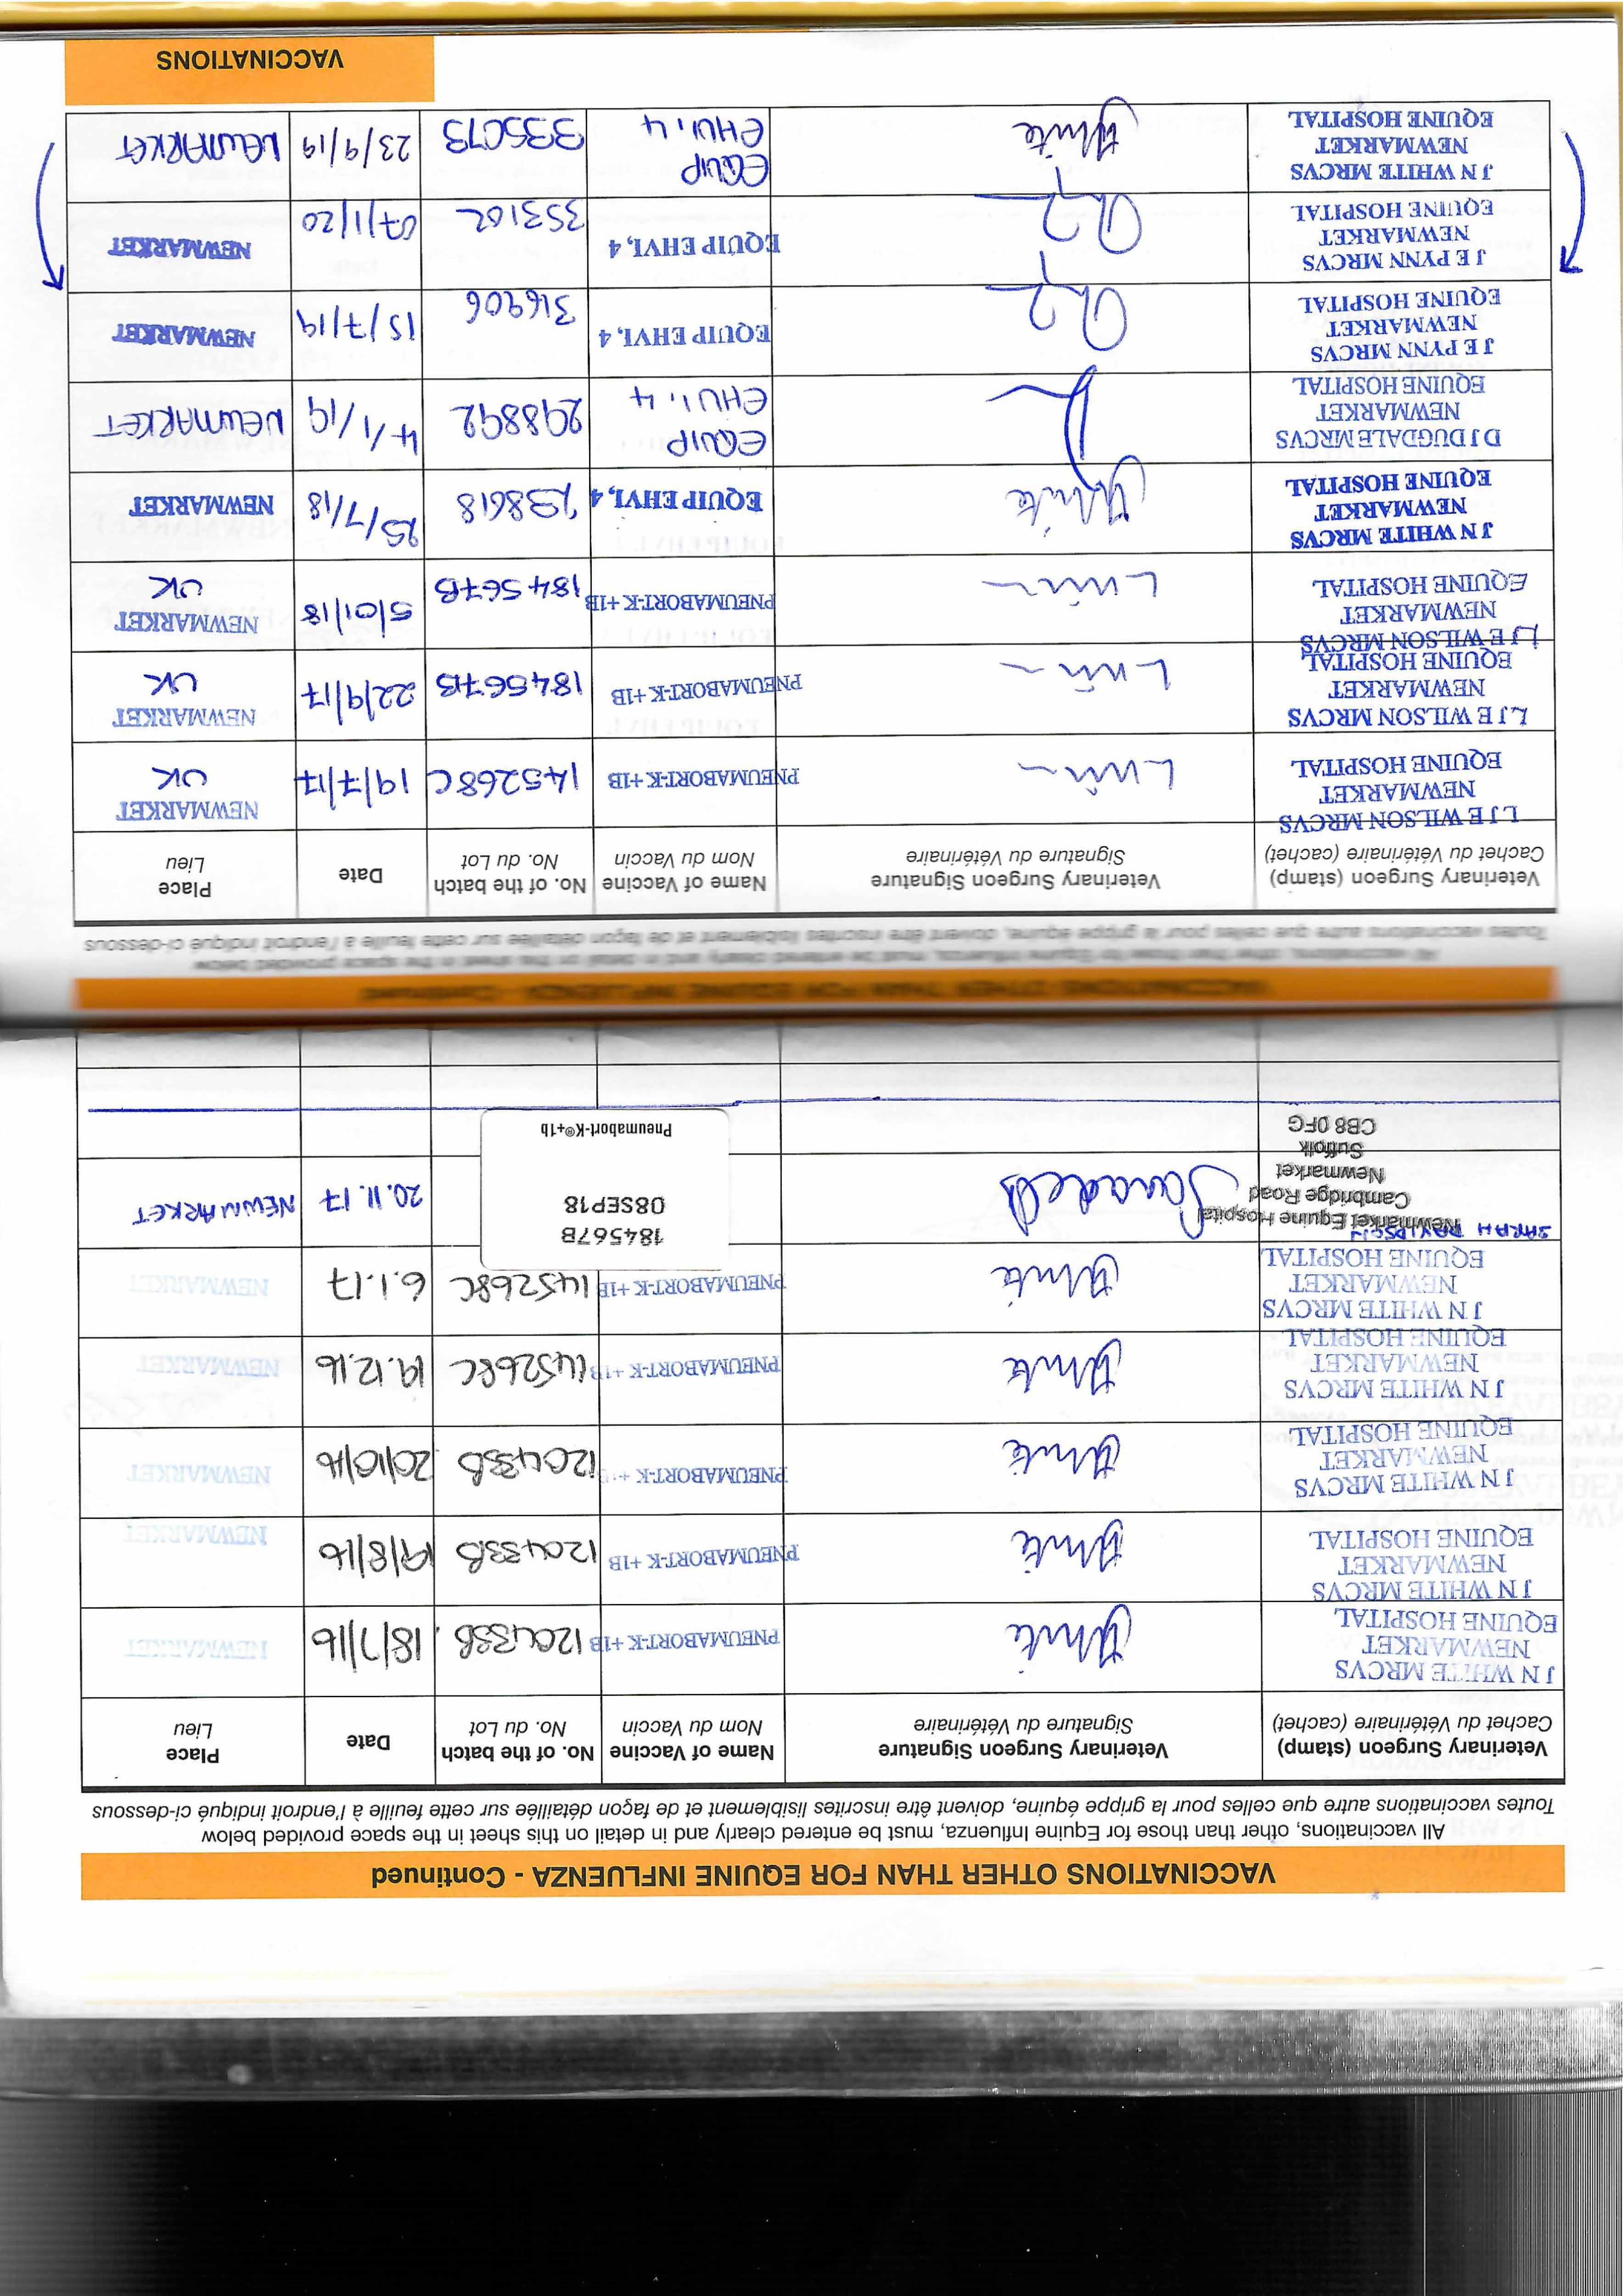 VACCINATIONS OTHER THAN FOR EQUINE INFLUENZA - Continued
All vaccinations, other than those for Equine Influenza, must be entered clearly and in detail on this sheet in the space provided below
Toutes vaccinations autre que celles pour la grippe équine, doivent être inscrites lisiblement et de façon détaillée sur cette feuille à l'endroit indiqué ci-dessous
Veterinary Surgeon (stamp) Veterinary Surgeon Signature Name of Vaccine No. of the batch Date Place
Cachet du Vétérinaire (cachet) Signature du Vétérinaire Nom du Vaccin No. du Lot Lieu
J N WHITE MRCVS
NEWMARKET
EQUINE HOSPITAL
White PNEUMABORT-K +1B 120433B 18/7/16 NEWMARKET
J N WHITE MRCVS
NEWMARKET
EQUINE HOSPITAL
White PNEUMABORT-K +1B 120433B 19/8/16 NEWMARKET
J N WHITE MRCVS
NEWMARKET
EQUINE HOSPITAL
White PNEUMABORT-K +1B 120433B 20/10/16 NEWMARKET
J N WHITE MRCVS
NEWMARKET
EQUINE HOSPITAL
White PNEUMABORT-K +1B 145268C 19.12.16 NEWMARKET
J N WHITE MRCVS
NEWMARKET
EQUINE HOSPITAL
White PNEUMABORT-K +1B 145268C 6.1.17 NEWMARKET
SARAH DAVIDSON
Newmarket Equine Hospital
Cambridge Road
Newmarket
Suffolk
CB8 0FG
184567B
08SEP18
Pneumabort-K®+1b
20.11.17 NEWMARKET
VACCINATIONS OTHER THAN FOR EQUINE INFLUENZA - Continued
All vaccinations, other than those for Equine Influenza, must be entered clearly and in detail on this sheet in the space provided below
Toutes vaccinations autre que celles pour la grippe équine, doivent être inscrites lisiblement et de façon détaillée sur cette feuille à l'endroit indiqué ci-dessous
Veterinary Surgeon (stamp) Veterinary Surgeon Signature Name of Vaccine No. of the batch Date Place
Cachet du Vétérinaire (cachet) Signature du Vétérinaire Nom du Vaccin No. du Lot Lieu
L J E WILSON MRCVS
NEWMARKET
EQUINE HOSPITAL
PNEUMABORT-K +1B 145268C 19/7/17 NEWMARKET
UK
L J E WILSON MRCVS
NEWMARKET
EQUINE HOSPITAL
PNEUMABORT-K +1B 184567B 22/9/17 NEWMARKET
UK
L J E WILSON MRCVS
NEWMARKET
EQUINE HOSPITAL
PNEUMABORT-K +1B 184567B 5/01/18 NEWMARKET
UK
J N WHITE MRCVS
NEWMARKET
EQUINE HOSPITAL
White EQUIP EHV1,4 238618 25/7/18 NEWMARKET
D J DUGDALE MRCVS
NEWMARKET
EQUINE HOSPITAL
EQUIP
EHV1,4 298892 4/1/19 NEWMARKET
J E PYNN MRCVS
NEWMARKET
EQUINE HOSPITAL
EQUIP EHV1,4 316906 15/7/19 NEWMARKET
J E PYNN MRCVS
NEWMARKET
EQUINE HOSPITAL
EQUIP EHV1,4 353102 07/1/20 NEWMARKET
J N WHITE MRCVS
NEWMARKET
EQUINE HOSPITAL
White EQUIP
EHV1,4 335073 23/9/19 NEWMARKET
VACCINATIONS